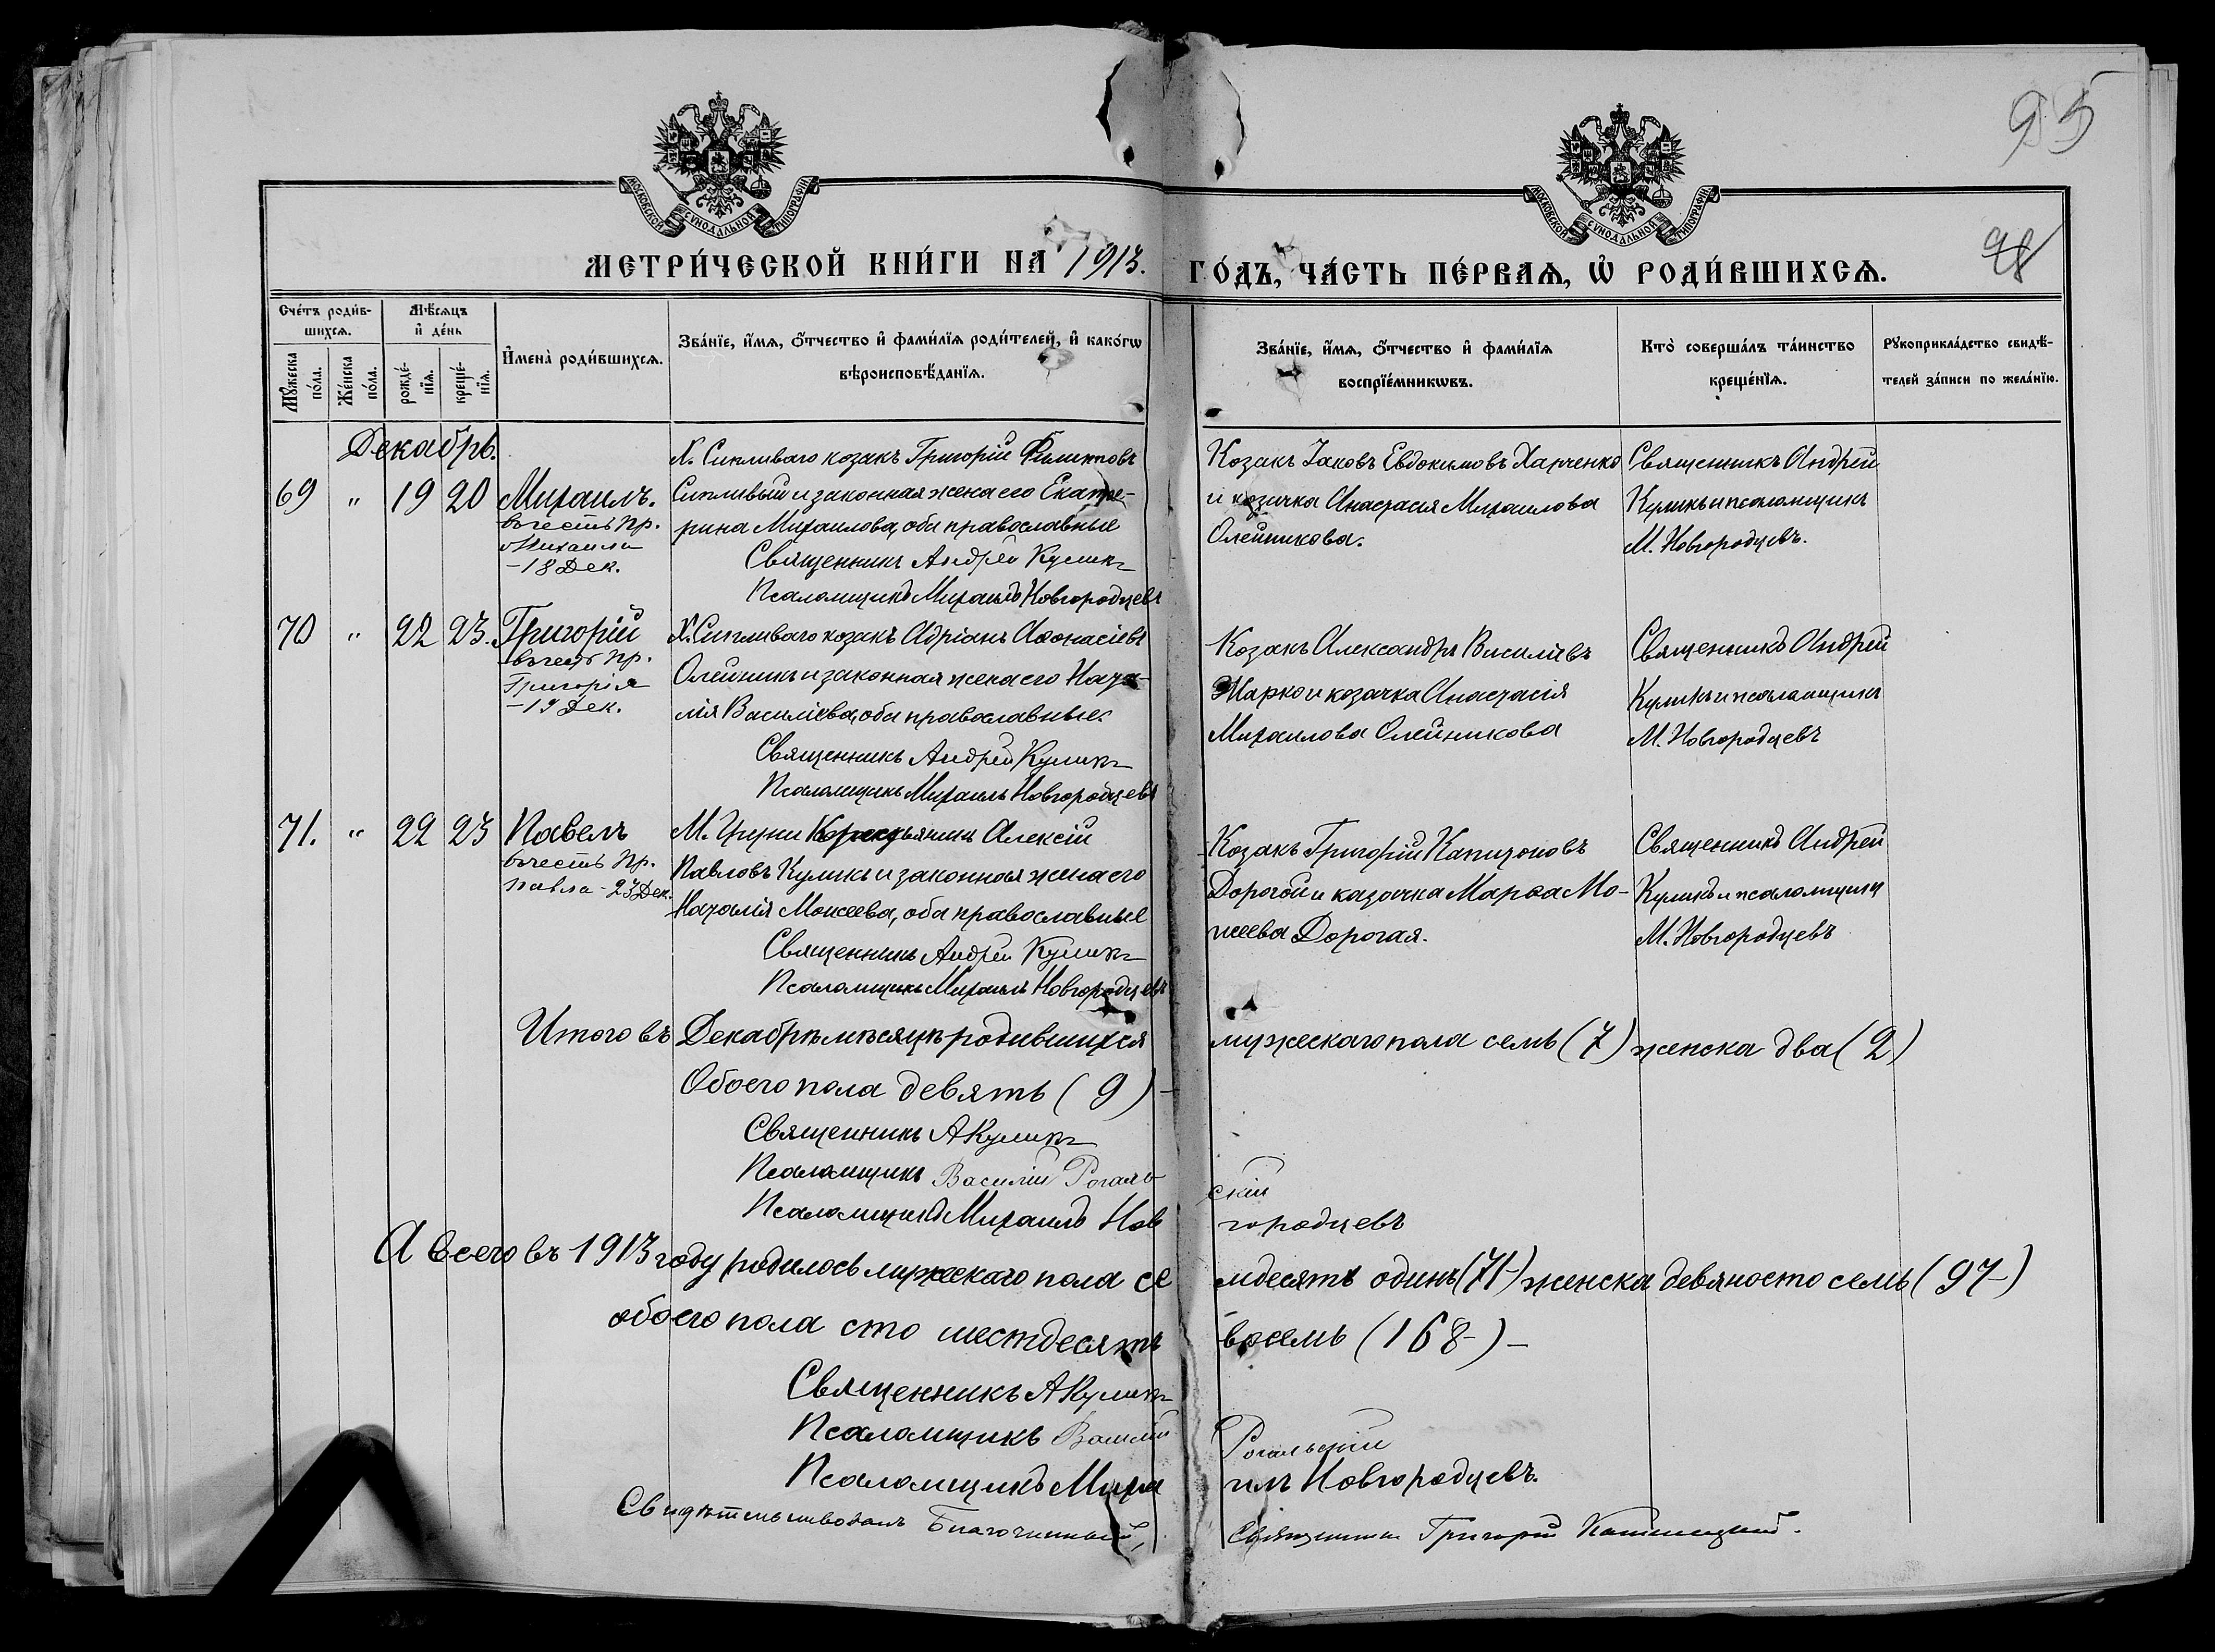 95
МОСКОВСКОЙ СѴНОДАЛЬНОЙ ТИПОГРАФІИ
МОСКОВСКОЙ СѴНОДАЛЬНОЙ ТИПОГРАФІИ
98
МЕТРИ́ЧЕСКОЙ КНИ́ГИ НА 1913. ГО́ДЪ, ЧА́СТЬ ПЕ́РВАѦ, Ѡ҆ РОДИ́ВШИХСѦ.
Сче́тъ роди́в-
шихсѧ.
Мꙋ́жеска по́ла.
Же́нска по́ла.
Мѣ́сѧцъ и҆ де́нь
рожде́-нїѧ.
креще́-нїѧ.
И҆мена̀ роди́вшихсѧ.
Зва́нїе, и҆́мѧ, ѻ҆́тчество и҆ фами́лїѧ роди́телей, и҆ како́гѡ
вѣроисповѣ́данїѧ.
Зва́нїе, и҆́мѧ, ѻ҆́тчество и҆ фами́лїѧ
воспрїе́мникѡвъ.
Кто̀ соверша́лъ та́инство
креще́нїѧ.
Рꙋкоприкла́дство свидѣ́-
телей за́писи по жела́нїю.
Декабрь.
69 " 19 20 Михаилъ.
въ честь пр.
Михаила
-18 Дек.
Х. Сипливаго козакъ Григорій Филиповъ
Сипливый и законная жена его Екате-
рина Михаилова, оба православные
Священникъ Андрей Куликъ
Псаломщикъ Михаилъ Новгородцевъ
Козакъ Іаковъ Евдокимовъ Харченко
и козачка Анастасія Михаилова
Олейникова.
Священникъ Андрей
Куликъ и псаломщикъ
М. Новгородцевъ.
70 " 22 23. Григорій
въ честь пр.
Григорія
-19 Дек.
Х. Сипливаго козакъ Адріанъ Аѳонасіевъ
Олейникъ и законная жена его Ната-
лія Василіева, оба православные.
Священникъ Андрей Куликъ
Псаломщикъ Михаилъ Новгородцевъ
Козакъ Александръ Василіевъ
Жарко и козачка Анастасія
Михаилова Олейникова
Священникъ Андрей
Куликъ и псаломщикъ
М. Новгородцевъ
71. " 22 23 Павелъ
въ честь пр.
Павла - 23 Дек.
М. Алексій
Павловъ Куликъ и законная жена его
Наталія Моисеева, оба православные
Священникъ Андрей Куликъ
Псаломщикъ Михаилъ Новгородцевъ
Козакъ Григорій Капитоновъ
Дорогой и казачка Марѳа Мо-
исеева Дорогая.
Священникъ Андрей
Куликъ и псаломщикъ
М. Новгородцевъ
Итого въ Декабрѣ мѣсяцѣ родившихся мужескаго пола семь (7) женска два (2)
Обоего пола девять (9) -
Священникъ А Куликъ
Псаломщикъ Василій Рогальскій
Псаломщикъ Михаилъ Новгородцевъ
А всего въ 1913 году родилось мужескаго пола семдесятъ одинъ (71) женска девяносто семь (97)
обоего пола сто шестдесятъ восемь (168) -
Священникъ А Куликъ
Псаломщикъ Василій Рогальскій
Псаломщикъ Михаилъ Новгородцевъ.
Свидѣтельствовалъ Благочинный, Священникъ Григорій